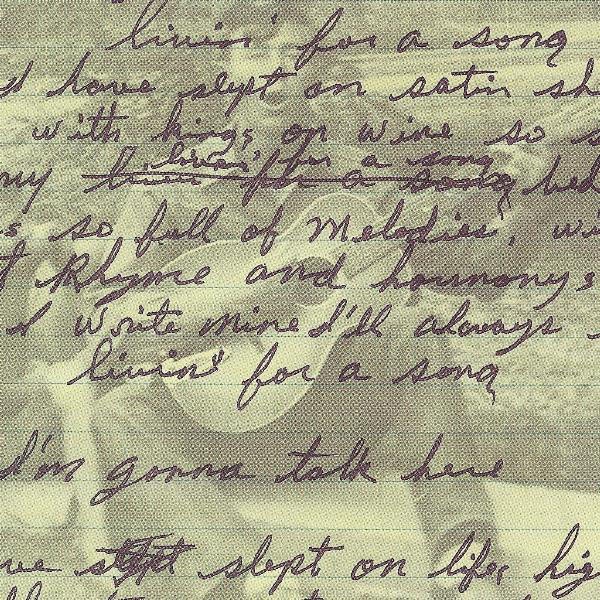 "livin' for a song
I have slept on satin sh
with kings on wine so s
livin' for a song
my for a song bed
so full of Melodies, wi
Rhyme and harmonys
I write mine I'll always
livin' for a song
I'm gonna talk here
ve slept on life, hig